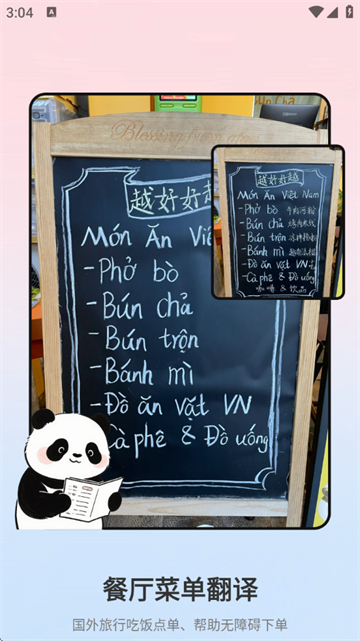 3:04
Blessing
越好好越
Món Ăn Việ
-Phở bò
-Bún chả
-Bún trộn
-Bánh mì
-Đồ ăn vặt VN
Cà phê & Đồ uống
越好好越
Món Ăn Việt Nam
-Phở bò 牛肉河粉
-Bún chả
-Bún trộn
-Bánh mì
-Đồ ăn vặt VN
-Cà phê & Đồ uống
咖啡 & 饮品
餐厅菜单翻译
国外旅行吃饭点单、帮助无障碍下单